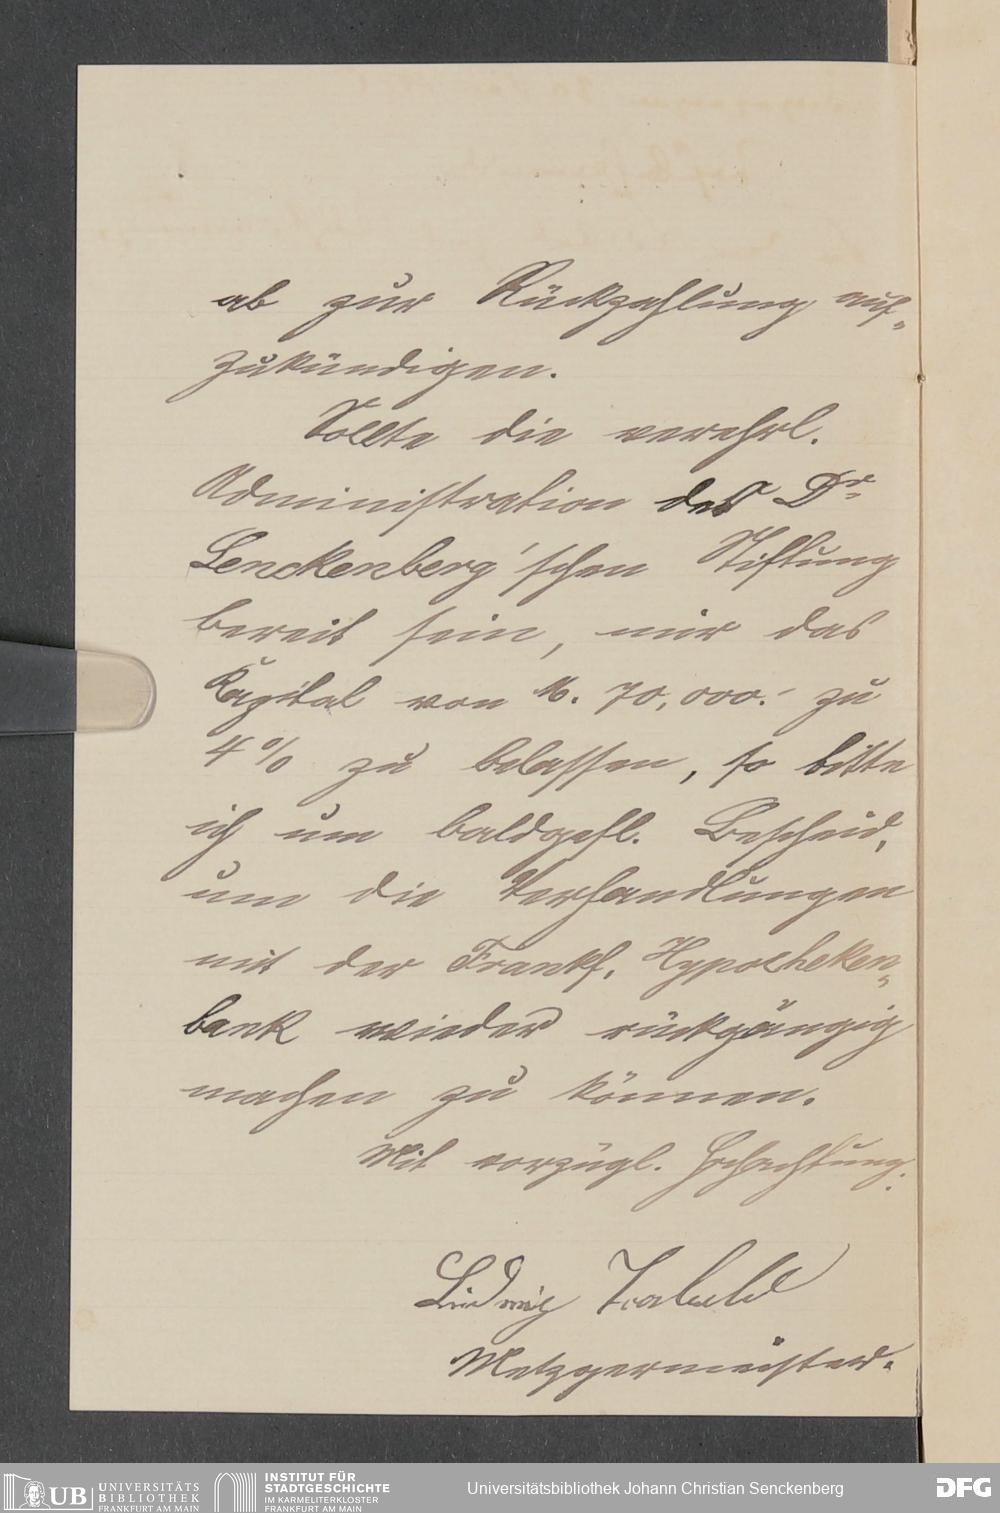 ab zur Rückzahlung auf-
zukündigen.
Sollte die verehrl.
Administration der Dr.
Senckenberg'schen Stiftung
bereit sein, mir das
Kapital von M. 70,000.- zu
4% zu belassen, so bitte
ich um baldgefl. Bescheid,
um die Verhandlungen
mit der Frankf. Hypotheken-
bank wieder rückgängig
machen zu können.
Mit vorzügl. Hochachtung.
Ludwig
Metzgermeister.
UB UNIVERSITÄTS
BIBLIOTHEK
FRANKFURT AM MAIN
INSTITUT FÜR
STADTGESCHICHTE
IM KARMELITERKLOSTER
FRANKFURT AM MAIN
Universitätsbibliothek Johann Christian Senckenberg
DFG